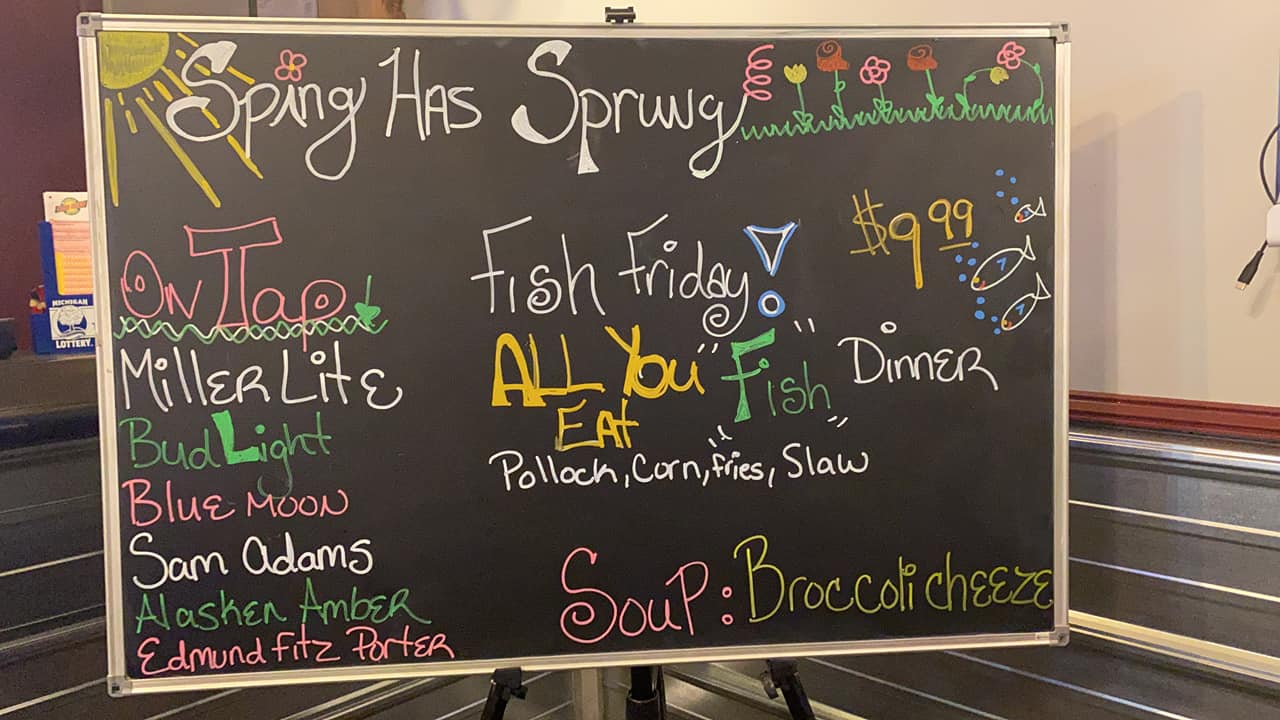 Sping Has Sprung
On Tap
Miller Lite
Bud Light
Blue Moon
Sam Adams
Alasken Amber
Edmund Fitz Porter
Fish Friday!
$9.99
ALL You "Fish" Dinner
EAt
Pollock, Corn, "fries, Slaw"
Soup: Broccoli cheeze
MICHIGAN
LOTTERY